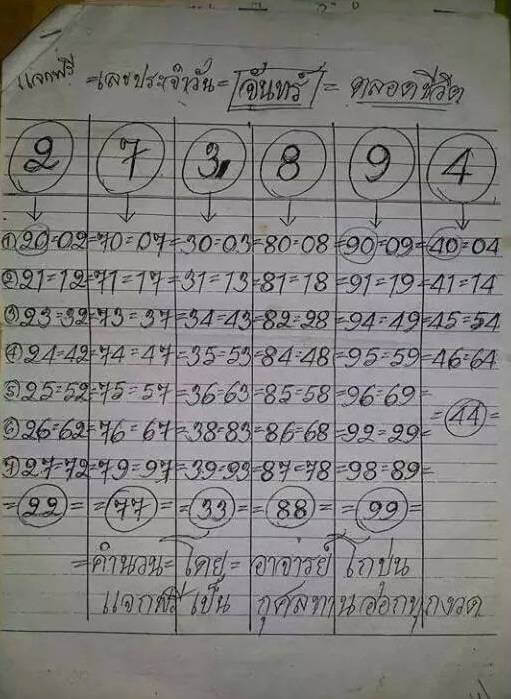 แจกฟรี =เลขประจำวัน= จันทร์ = ตลอดชีวิต
2 7 3 8 9 4
① 20=02=70=07=30=03=80=08=90=09=40=04
② 21=12=71=17=31=13=81=18=91=19=41=14
③ 23=32=73=37=34=43=82=28=94=49=45=54
④ 24=42=74=47=35=53=84=48=95=59=46=64
⑤ 25=52=75=57=36=63=85=58=96=69=
⑥ 26=62=76=67=38=83=86=68=92=29=
=44=
⑦ 27=72=79=97=39=93=87=78=98=89=
=22= =77= =33= =88= =99=
=คำนวน=โดย= อาจารย์ โกปน
แจกฟรี เป็น กุศลทาน ออกทุกงวด